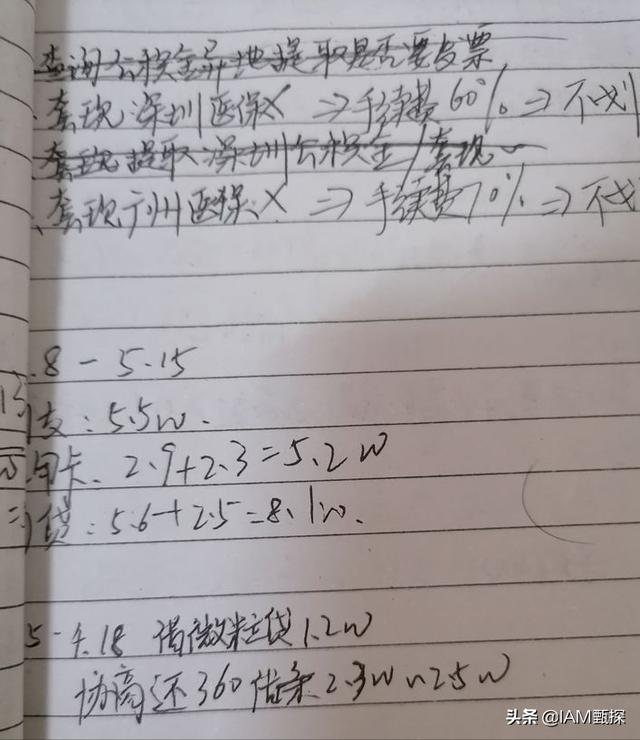 查询公积金异地提取是否要发票
套现深圳医保X ⇒手续费60%⇒不划
套现提取深圳公积金/套现
套现广州医保X ⇒手续费70%⇒不划
.8 - 5.15
支:5.5w.
卡. 2.9+2.3=5.2w
贷:5.6+2.5=8.1w.
5-4.18 借微粒贷1.2w
协商还360借条2.3w、2.5w
头条 @IAM甄探